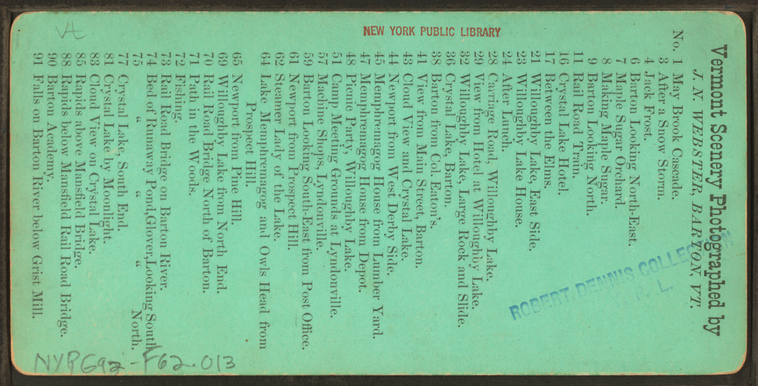 NEW YORK PUBLIC LIBRARY
Vermont Scenery Photographed by
J. N. WEBSTER, BARTON, VT.
No. 1 May Brook Cascade.
3 After a Snow Storm.
4 Jack Frost.
6 Barton Looking North-East.
7 Maple Sugar Orchard.
8 Making Maple Sugar.
9 Barton Looking North.
11 Rail Road Train.
16 Crystal Lake Hotel.
17 Between the Elms.
21 Willoughby Lake, East Side.
23 Willoughby Lake House.
24 After Lunch.
28 Carriage Road, Willoughby Lake.
29 View from Hotel at Willoughby Lake.
32 Willoughby Lake, Large Rock and Slide.
36 Crystal Lake, Barton.
38 Barton from Col. Eaton's.
41 View from Main Street, Barton.
43 Cloud View and Crystal Lake.
44 Newport from West Derby Side.
45 Memphremagog House from Lumber Yard.
47 Memphremagog House from Depot.
48 Picnic Party, Willoughby Lake.
51 Camp Meeting Grounds at Lyndonville.
57 Machine Shops, Lyndonville.
59 Barton Looking South-East from Post Office.
61 Newport from Prospect Hill.
62 Steamer Lady of the Lake.
64 Lake Memphremagog and Owls Head from
Prospect Hill.
65 Newport from Pine Hill.
69 Willoughby Lake from North End.
70 Rail Road Bridge North of Barton.
71 Path in the Woods.
72 Fishing.
73 Rail Road Bridge on Barton River.
74 Bed of Runaway Pond, Glover, Looking South
75 " " " North.
77 Crystal Lake, South End.
81 Crystal Lake by Moonlight.
83 Cloud View on Crystal Lake.
85 Rapids above Mansfield Bridge.
88 Rapids below Mansfield Rail Road Bridge.
90 Barton Academy.
91 Falls on Barton River below Grist Mill.
ROBERT DENNIS COLLECTION
Vt
NYPG92-F62.013